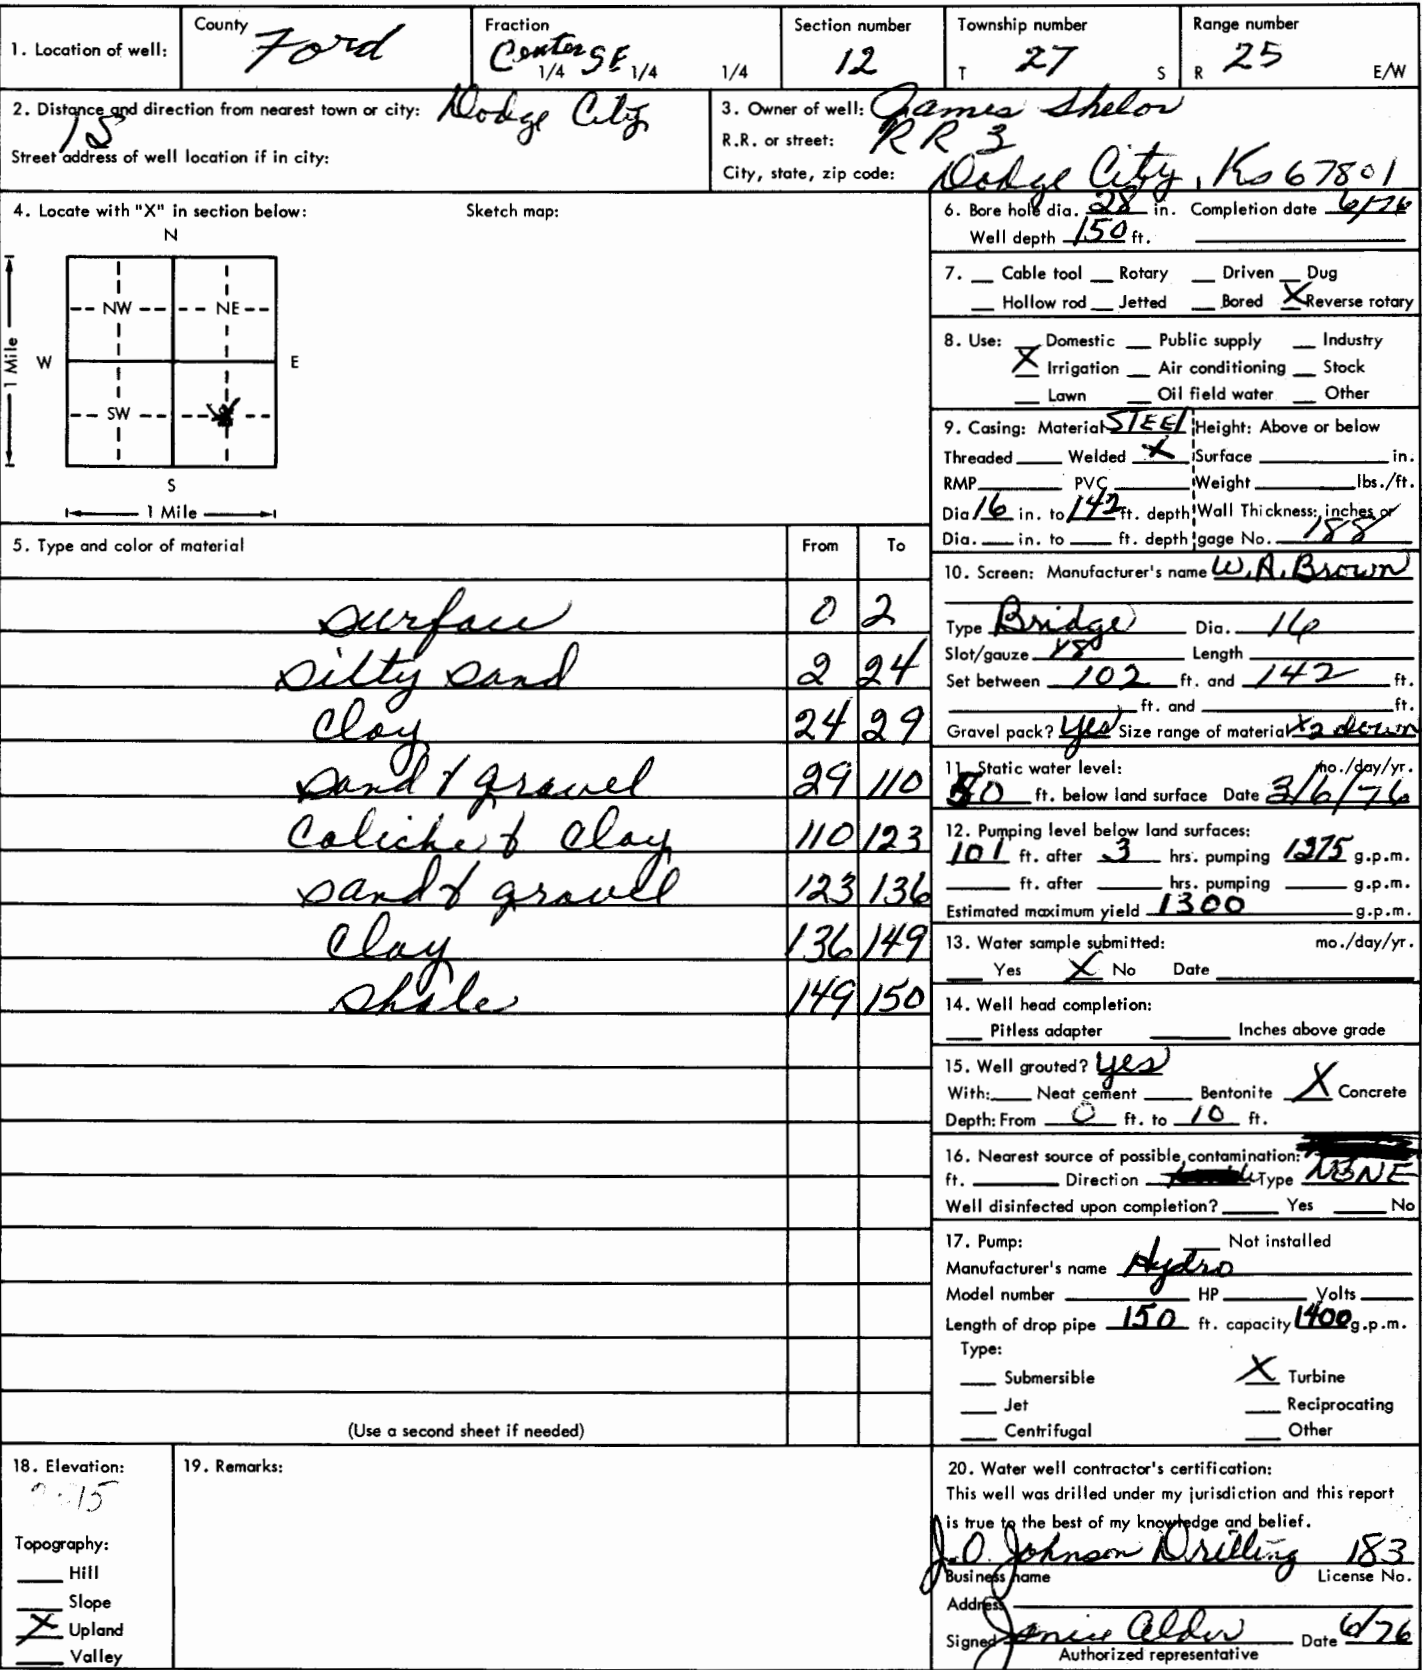 1. Location of well: County Ford Fraction Center 1/4 SE 1/4 1/4 Section number 12 Township number T 27 S Range number R 25 E/W
2. Distance and direction from nearest town or city: Dodge City
1 S
Street address of well location if in city:
3. Owner of well: James Shelor
R.R. or street: RR 3
City, state, zip code: Dodge City, Ks 67801
4. Locate with "X" in section below: Sketch map:
N
NW NE
W E
1 Mile
SW X
S
1 Mile
5. Type and color of material From To
surface 0 2
silty sand 2 24
clay 24 29
sand & gravel 29 110
Caliche & Clay 110 123
sand & gravel 123 136
Clay 136 149
shale 149 150
(Use a second sheet if needed)
6. Bore hole dia. 28 in. Completion date 6/76
Well depth 150 ft.
7. Cable tool Rotary Driven Dug
Hollow rod Jetted Bored X Reverse rotary
8. Use: Domestic Public supply Industry
X Irrigation Air conditioning Stock
Lawn Oil field water Other
9. Casing: Material STEEl Height: Above or below
Threaded Welded X Surface in.
RMP PVC Weight lbs./ft.
Dia 16 in. to 142 ft. depth Wall Thickness: inches or
Dia. in. to ft. depth gage No. 188
10. Screen: Manufacturer's name W.A. Brown
Type Bridge Dia. 16
Slot/gauze Length
Set between 102 ft. and 142 ft.
ft. and ft.
Gravel pack? yes Size range of material x2 down
11. Static water level: mo./day/yr.
50 ft. below land surface Date 3/6/76
12. Pumping level below land surfaces:
101 ft. after 3 hrs. pumping 1275 g.p.m.
ft. after hrs. pumping g.p.m.
Estimated maximum yield 1300 g.p.m.
13. Water sample submitted: mo./day/yr.
Yes X No Date
14. Well head completion:
Pitless adapter Inches above grade
15. Well grouted? yes
With: Neat cement Bentonite X Concrete
Depth: From 0 ft. to 10 ft.
16. Nearest source of possible contamination:
ft. Direction Type NONE
Well disinfected upon completion? Yes No
17. Pump: Not installed
Manufacturer's name Hydro
Model number HP Volts
Length of drop pipe 150 ft. capacity 1400 g.p.m.
Type:
Submersible X Turbine
Jet Reciprocating
Centrifugal Other
18. Elevation:
Topography:
Hill
Slope
X Upland
Valley
19. Remarks:
20. Water well contractor's certification:
This well was drilled under my jurisdiction and this report
is true to the best of my knowledge and belief.
J.O. Johnson Drilling 183
Business name License No.
Address
Signed Janice Alder Date 6/76
Authorized representative